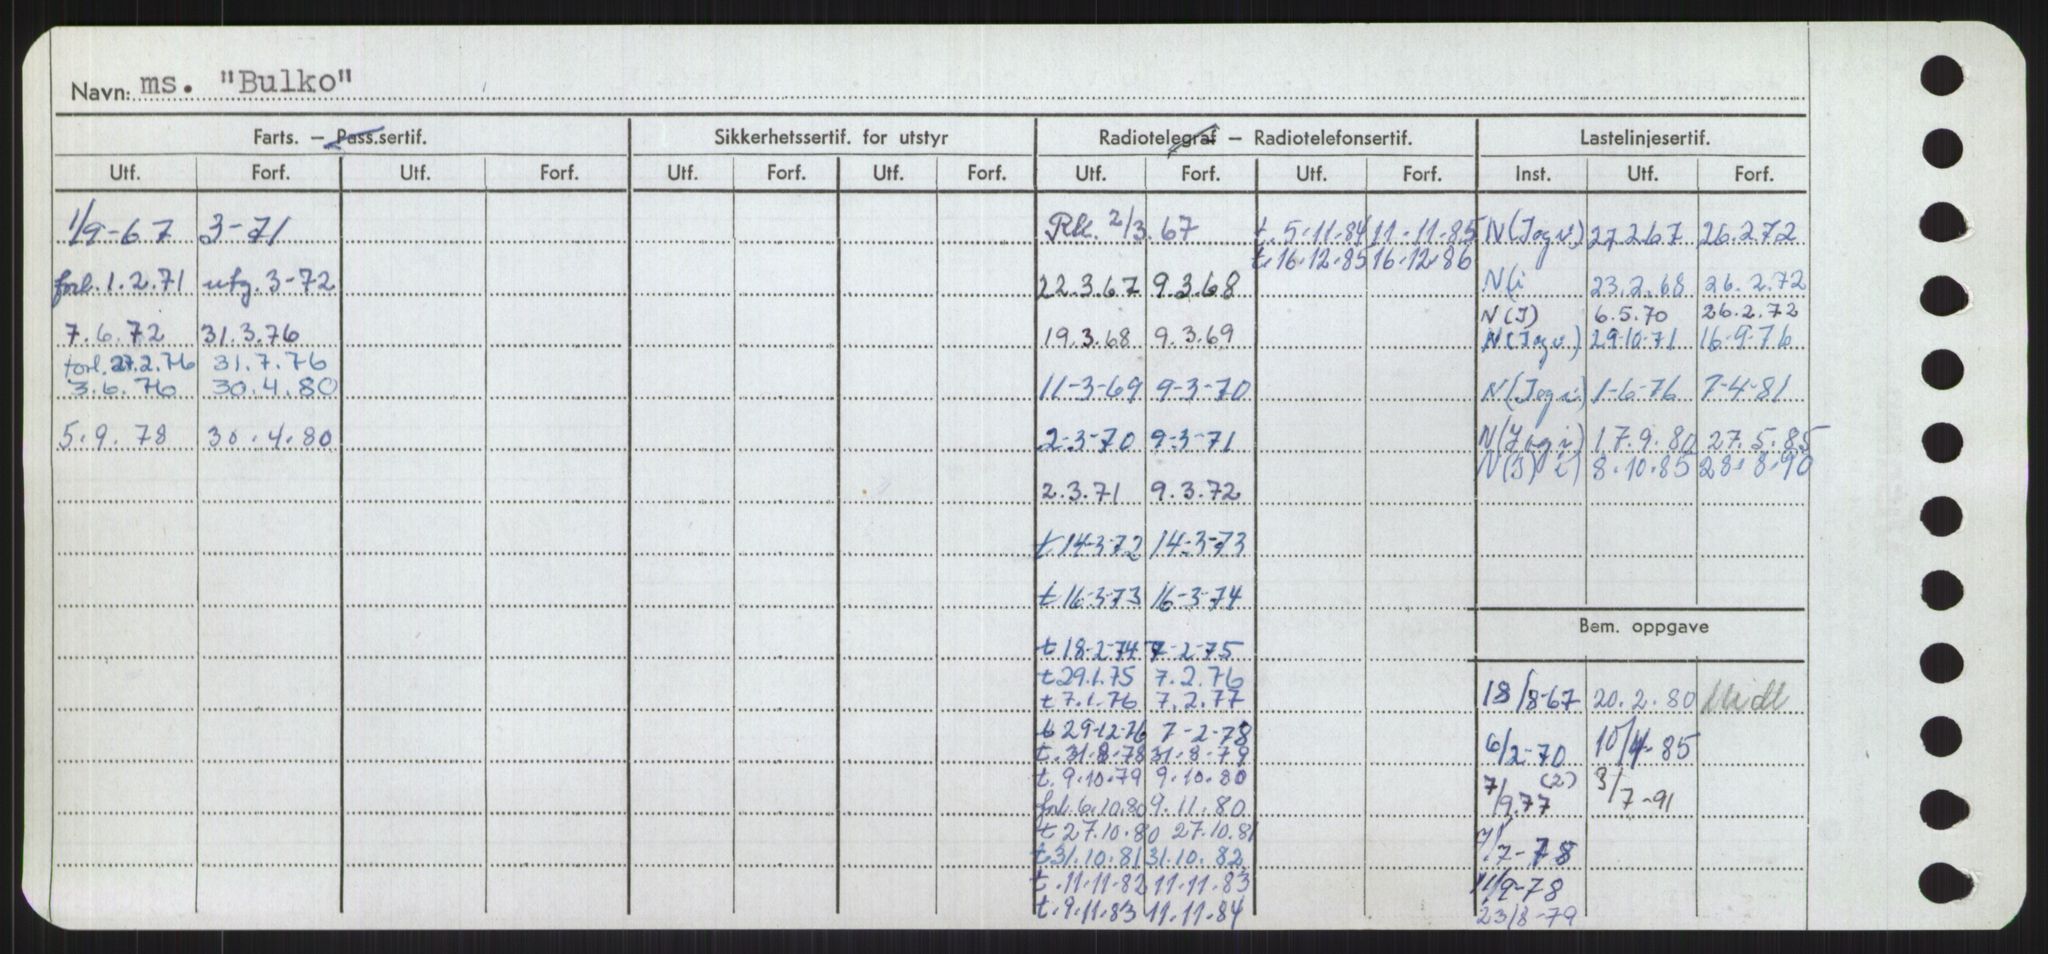 Navn: ms. "Bulko"
Farts. — Pass.sertif.
Sikkerhetssertif. for utstyr
Radiotelegraf — Radiotelefonsertif.
Lastelinjesertif.
Utf. Forf. Utf. Forf. Utf. Forf. Utf. Forf. Utf. Forf. Utf. Forf. Inst. Utf. Forf.
1/9-67 3-71
forl. 1.2.71 utg. 3-72
7.6.72 31.3.76
forl. 27.2.76 31.7.76
3.6.76 30.4.80
5.9.78 30.4.80
2/3.67
22.3.67 9.3.68
19.3.68 9.3.69
11-3-69 9-3-70
2-3-70 9-3-71
2.3.71 9.3.72
t 14-3-72 14-3-73
t 16-3-73 16-3-74
t 18-2-74 7-2-75
t 29.1.75 7.2.76
t 7.1.76 7.2.77
t 29-12-76 7-2-78
t. 31.8.78 31.8-79
t. 9.10.79 9.10.80
forl. 6.10.80 9.11.80
t 27.10.80 27.10.81
t. 31.10.81 31.10.82
t. 11.11.82 11.11.83
t. 9.11.83 11.11.84
t. 5.11.84 11.11.85
t. 16.12.85 16.12.86
N (I og v.) 27.2.67 26.2.72
N (i 23.2.68 26.2.72
N (I) 6.5.70 26.2.72
N (I og v.) 29-10-71 16-9-76
N (I og i) 1-6-76 7-4-81
N (I og i) 17.9.80 27.5.85
N (I) i) 8.10.85 28.8.90
Bem. oppgave
18/8-67 20.2.80
6/2-70 10/4-85
7/9.77 (2) 3/7-91
7/7-78
11/9-78
23/8-79